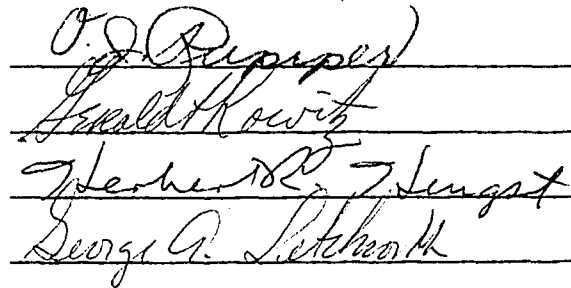 O. J. Rupiper
Gerald T. Kowitz
Herbert R. Hengst
George A. Letchworth